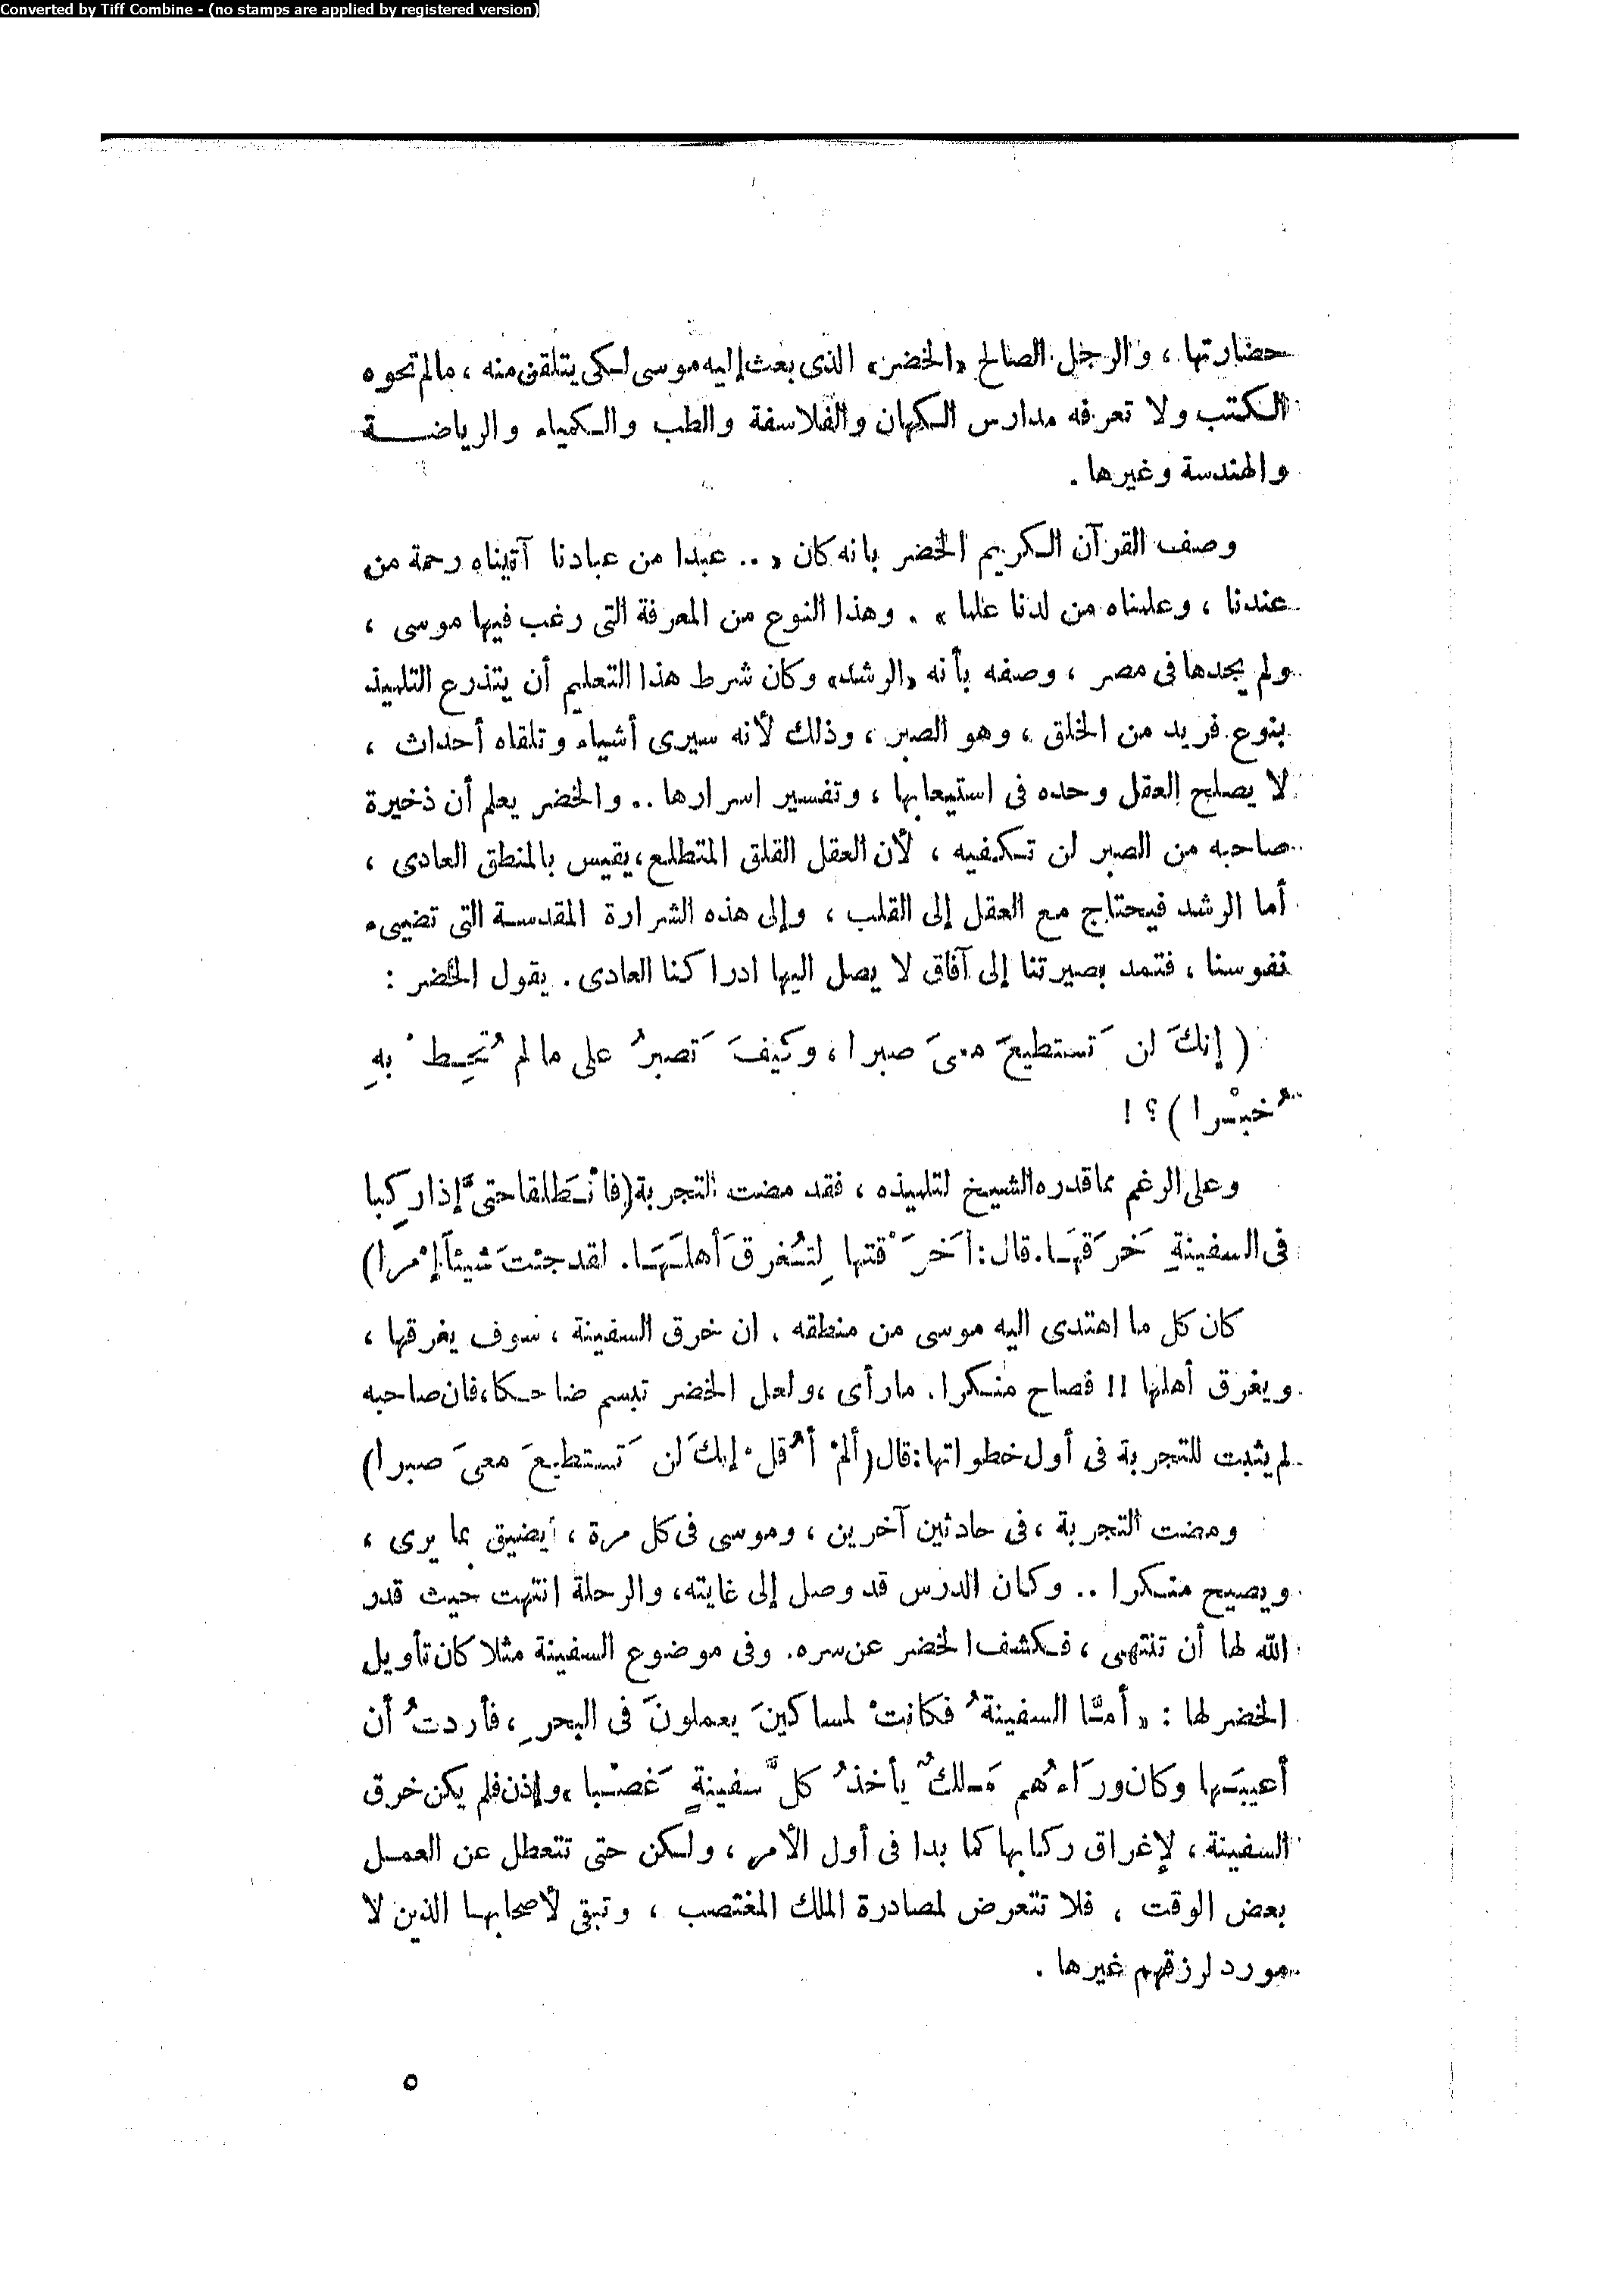 Converted by Tiff Combine - (no stamps are applied by registered version)
حضارتها ، والرجل الصالح «الخضر» الذى بعث إليه موسى لكى يتلقن منه ، مالم تحوه
الكتب ولا تعرفه مدارس الكهان والفلاسفة والطب والكمياء والرياضة
والهندسة وغيرها .
وصف القرآن الكريم الخضر بانه كان « .. عبدا من عبادنا آتيناه رحمة من
عندنا ، وعلمناه من لدنا علما » . وهذا النوع من المعرفة التى رغب فيها موسى ،
ولم يجدها فى مصر ، وصفه بأنه «الرشد» وكان شرط هذا التعليم أن يتذرع التلميذ
بنوع فريد من الخلق ، وهو الصبر ، وذلك لأنه سيرى أشياء وتلقاه أحداث ،
لا يصلح العقل وحده فى استيعابها ، وتفسير اسرارها .. والخضر يعلم أن ذخيرة
صاحبه من الصبر لن تكفيه ، لأن العقل القلق المتطلع ، يقيس بالمنطق العادى ،
أما الرشد فيحتاج مع العقل إلى القلب ، وإلى هذه الشرارة المقدسة التى تضيىء
نفوسنا ، فتمد بصيرتنا إلى آفاق لا يصل اليها ادراكنا العادى . يقول الخضر :
( إنكَ لن تَستطيعَ معىَ صبرا ، وكَيفَ تَصبرُ على ما لم تُحِط ْ بهِ
خُبْرا ) ؟ !
وعلى الرغم مما قدره الشيخ لتلميذه ، فقد مضت التجربة (فانْطَلقا حتىَّ إذا ركِبا
فى السفينةِ خَرَقهَا . قال : أخَرَقْتها لِتُغرقَ أهلَهَا . لقد جئتَ شيئاً إمْرا)
كان كل ما اهتدى اليه موسى من منطقه . ان خرق السفينة ، سوف يغرقها ،
ويغرق أهلها !! فصاح منكرا . مارأى ، ولعل الخضر تبسم ضاحكا ، فان صاحبه
لم يثبت للتجربة فى أول خطواتها : قال (ألمْ أقُلْ إنكَ لن تَستطيعَ معىَ صبرا)
ومضت التجربة ، فى حادثين آخرين ، وموسى فى كل مرة ، يضيق بما يرى ،
ويصيح منكرا .. وكان الدرس قد وصل إلى غايته ، والرحلة انتهت حيث قدر
الله لها أن تنتهى ، فكشف الخضر عن سره . وفى موضوع السفينة مثلا كان تأويل
الخضر لها : « أمَّا السفينةُ فكانتْ لمساكينَ يعملونَ فى البحرِ ، فأردتُ أن
أعيبَها وكان وراءَهُم مَلكٌ يأخذُ كلَّ سفينةٍ غَصْبا » وإذن فلم يكن خرق
السفينة ، لإغراق ركابها كما بدا فى أول الأمر ، ولكن حتى تتعطل عن العمل
بعض الوقت ، فلا تتعرض لمصادرة الملك المغتصب ، وتبقى لأصحابها الذين لا
مورد لرزقهم غيرها .
٥